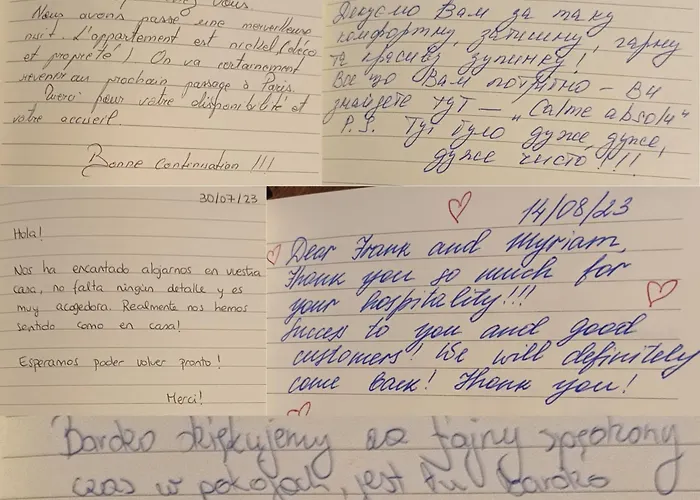 vous.
Nous avons passé une merveilleuse
nuit. L'appartement est nickel (déco
et propriété) On va certainement
revenir au prochain passage à Paris.
Merci pour votre disponibilité et
votre accueil.
Bonne continuation !!!
Дякуємо Вам за таку
комфортну, затишну, гарну
та красиву зупинку!
Все що Вам потрібно – Ви
знайдете тут – „Calme absolu"
P.S. Тут було дуже, дуже,
дуже чисто!!!!
30/07/23
Hola!
Nos ha encantado alojarnos en vuestra
casa, no falta ningún detalle y es
muy acogedora. Realmente nos hemos
sentido como en casa!
Esperamos poder volver pronto!
Merci!
14/08/23
Dear Frank and Myriam,
Thank you so much for
your hospitality!!!
Success to you and good
customers! We will definitely
come back! Thank you!
Bardzo dziękujemy za fajny spędzony
czas w pokojach, jest tu bardzo